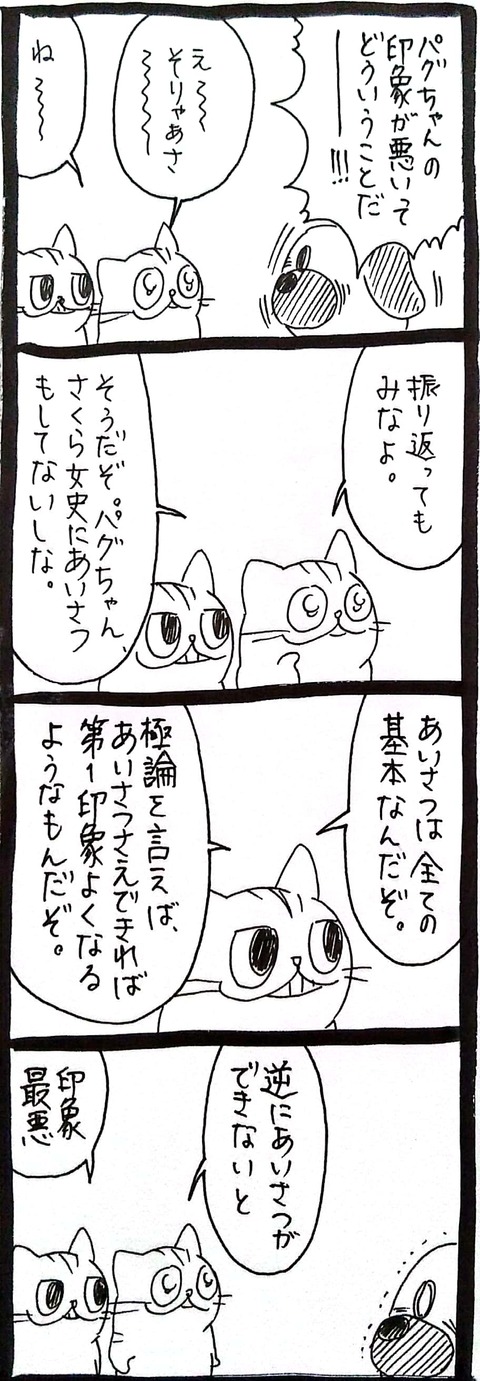 パグちゃんの
印象が悪いって
どういうことだ
━━━!!!
え〜〜
そりゃあさ
〜〜〜
ね〜〜〜
振り返っても
みなよ。
そうだぞ。パグちゃん、
さくら女史にあいさつ
もしてないしな。
あいさつは全ての
基本なんだぞ。
極論を言えば、
あいさつさえできれば
第1印象よくなる
ようなもんだぞ。
逆にあいさつが
できないと
印象
最悪